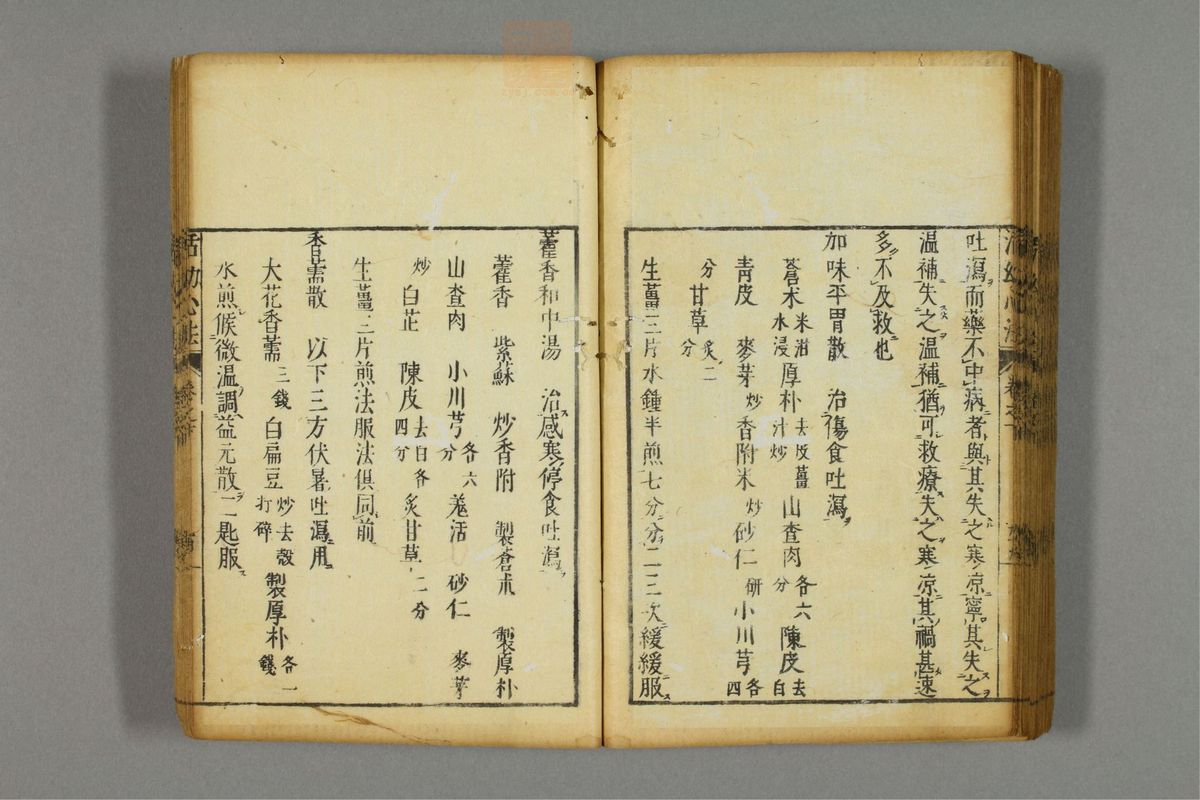 吐瀉而藥不中病者與其失之寒凉寧其失之
温補失之温補猶可救療失之寒凉其禍甚速
多不及救也
加味平胃散 治傷食吐瀉
蒼术米泔水浸 厚朴去皮薑汁炒 山查肉各六分 陳皮去白
青皮 麥芽炒 香附米炒 砂仁研 小川芎各四
分 甘草炙二分
生薑三片水鍾半煎七分分二三次緩緩服
藿香和中湯 治感寒停食吐瀉
藿香 紫蘇 炒香附 製蒼术 製厚朴
山查肉 小川芎各六分 羗活 砂仁 麥芽
炒 白芷 陳皮去白各四分 炙甘草二分
生薑三片煎法服法俱同前
香薷散 以下三方伏暑吐瀉用
大花香薷三錢 白扁豆炒去殼打碎 製厚朴各一錢
水煎候微温調益元散一二匙服
活幼心法